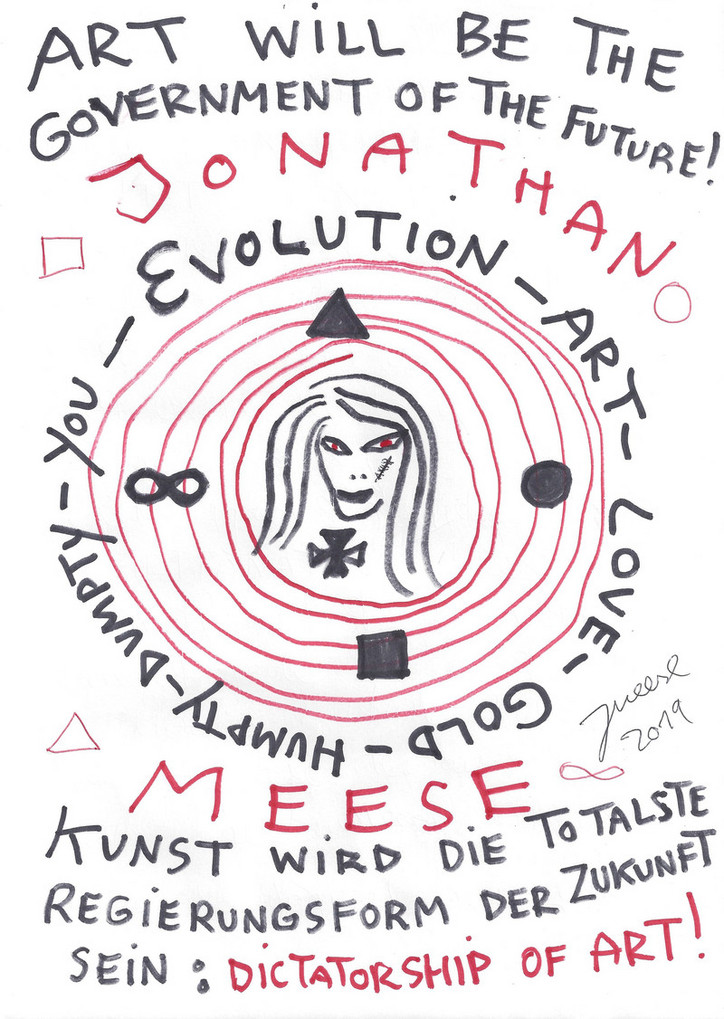 ART WiLL BE THE
GOVERNMENT OF THE FUTURE!
JONATHAN
EVOLUTION - ART - LOVE - GOLD - HUMPTY-DUMPTY - YOU -
JMeese
2019
MEESE
KUNST WiRD DiE TOTALSTE
REGiERUNGSFORM DER ZUKUNFT
SEiN : DiCTATORSHiP OF ART!